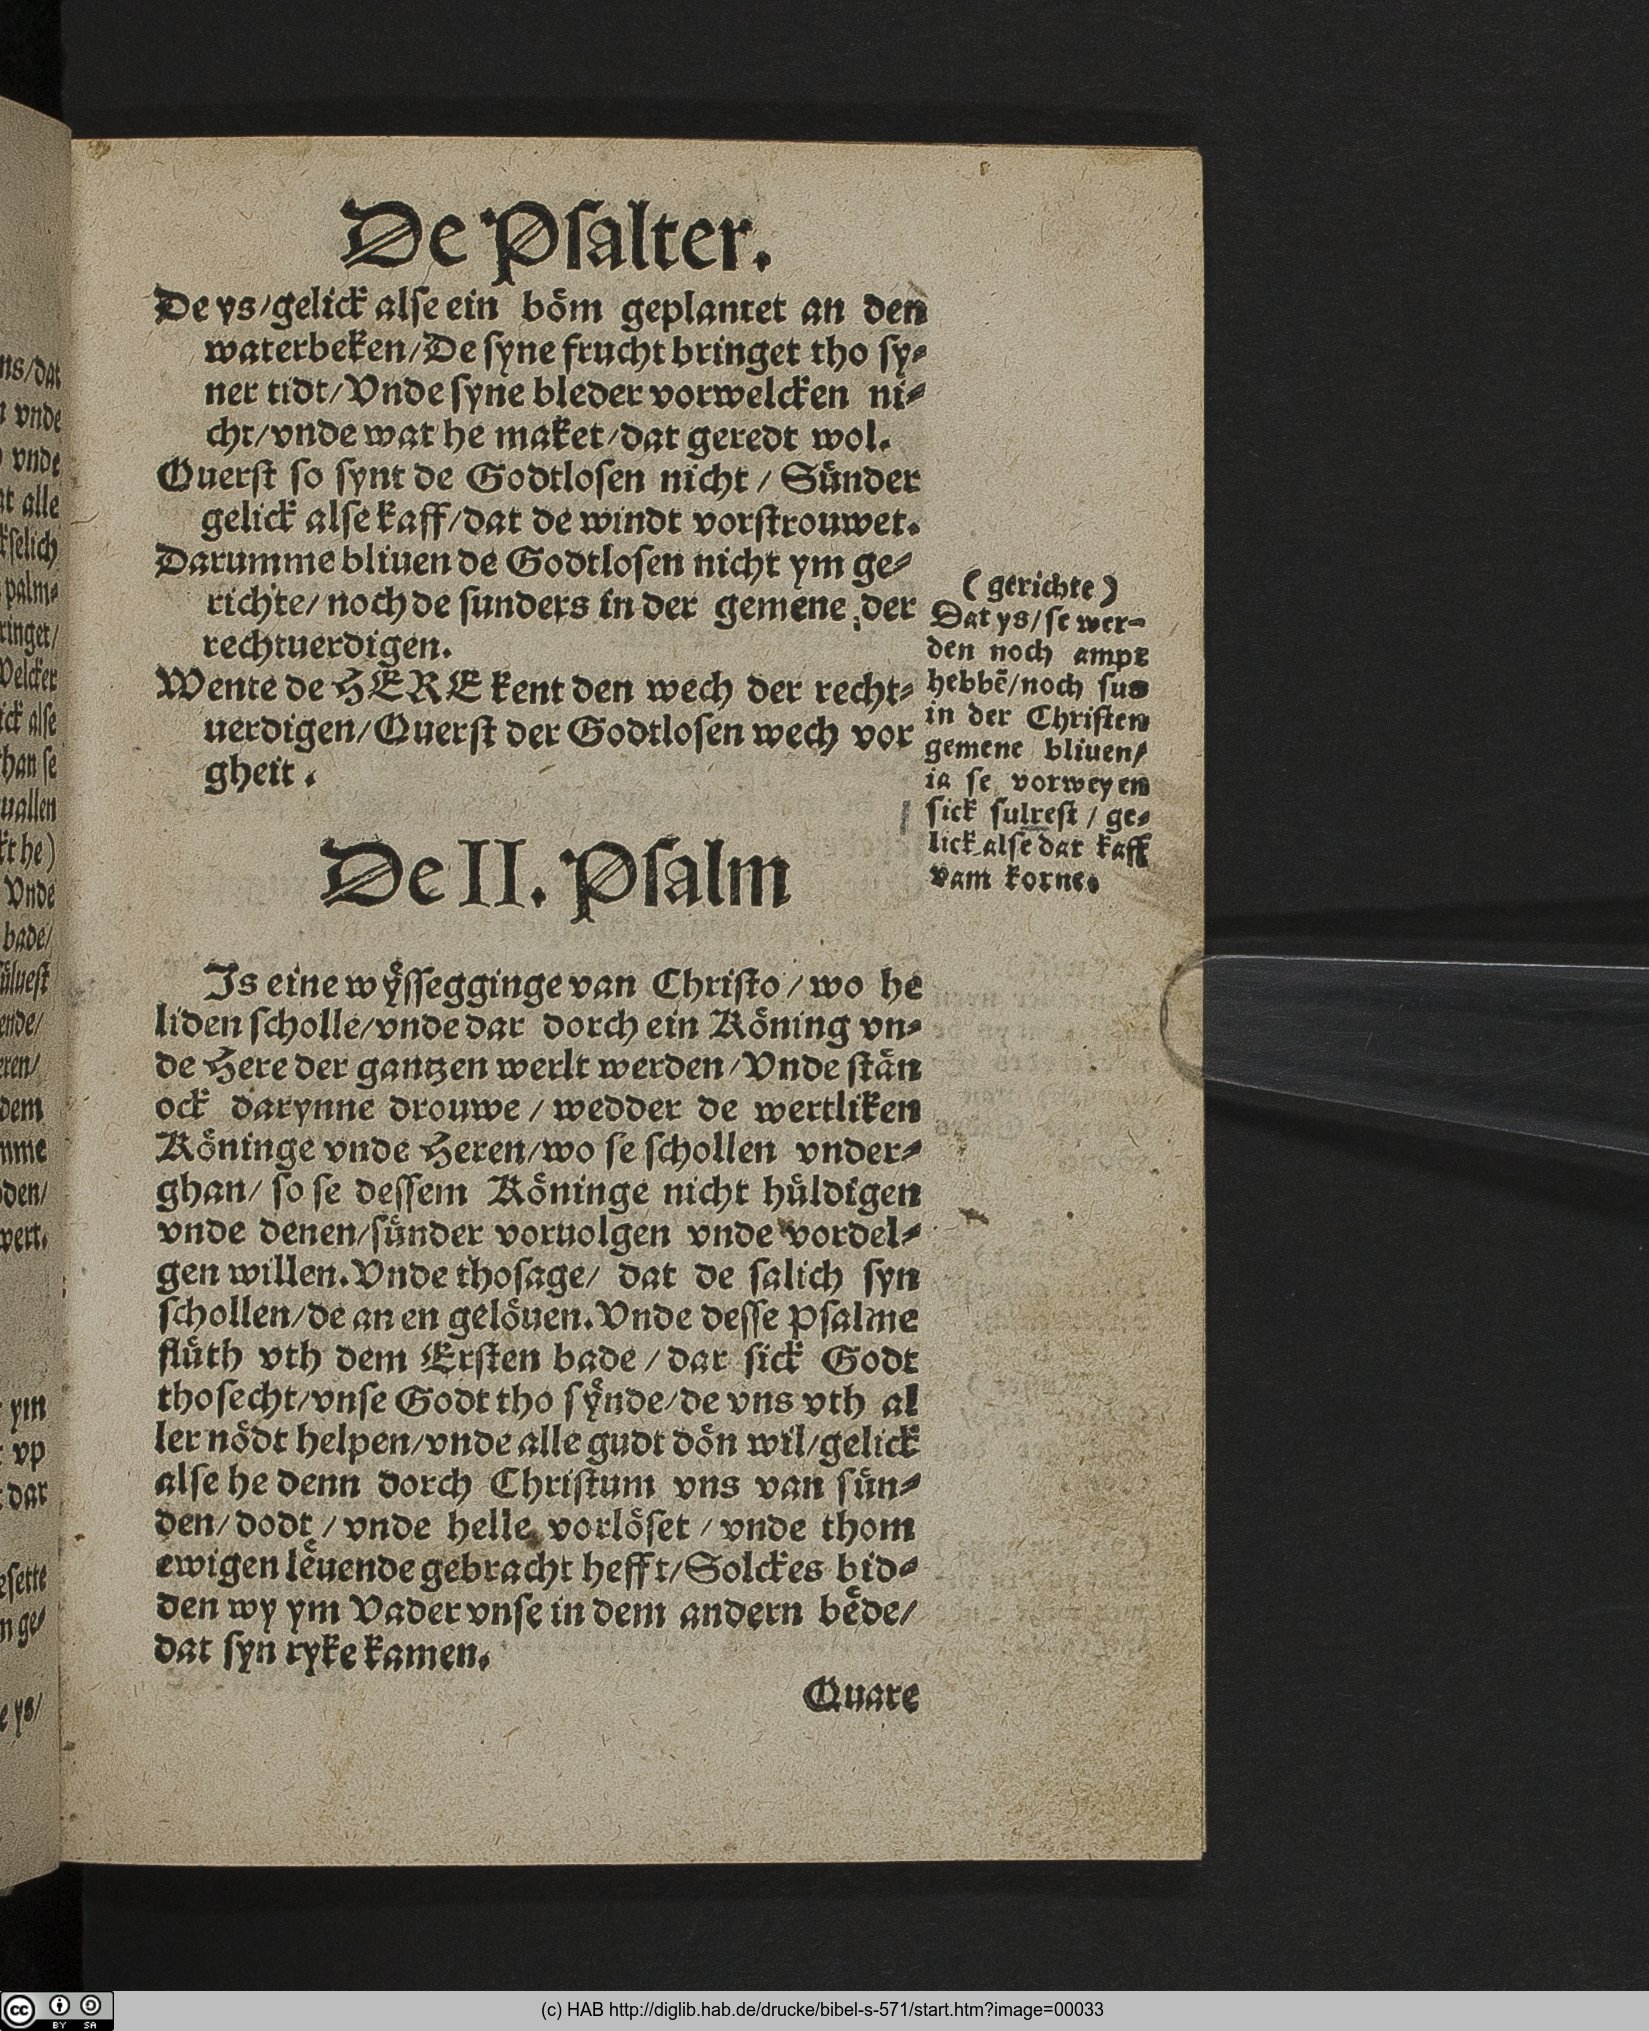 De Psalter.
De ys/gelick alse ein bo&#x364;m geplantet an den
waterbeken/De syne frucht bringet tho sy⸗
ner tidt/Vnde syne bleder vorwelcken ni⸗
cht/vnde wat he maket/dat geredt wol.
Querst so synt de Godtlosen nicht/Sünder
gelick alse kaff/dat de windt vorstrouwet.
Darumme bliuen de Godtlosen nicht ym ge⸗
richte/noch de sunders in der gemene der
rechtuerdigen.
Wente de HERE kent den wech der recht⸗
uerdigen/Querst der Godtlosen wech vor
gheit.
(gerichte)
Dat ys/se wer⸗
den noch ampt
hebbē/noch sus
in der Christen
gemene bliuen/
ia se vorweyen
sick sulrest/ge⸗
lick alse dat kaff
vam korne.
De II. Psalm
Js eine wyͤssegginge van Christo/wo he
liden scholle/vnde dar dorch ein Koͤning vn⸗
de Here der gantzen werlt werden/Vnde staͤn
ock darynne drouwe/wedder de wertliken
Koͤninge vnde Heren/wo se schollen vnder⸗
ghan/so se dessem Koͤninge nicht huͤldigen
vnde denen/suͤnder voruolgen vnde vordel⸗
gen willen.Vnde thosage/dat de salich syn
schollen/de an en geloͤuen.Vnde desse Psalme
fluͤth vth dem Ersten bade/dar sick Godt
thosecht/vnse Godt tho syͤnde/de vns vth al
ler noͤdt helpen/vnde alle gudt doͤn wil/gelick
alse he denn dorch Christum vns van suͤn⸗
den/dodt/vnde helle vorloͤset/vnde thom
ewigen leͤuende gebracht hefft/Solckes bid⸗
den wy ym Vader vnse in dem andern beͤde/
dat syn ryke kamen.
Quare
(c) HAB http://diglib.hab.de/drucke/bibel-s-571/start.htm?image=00033